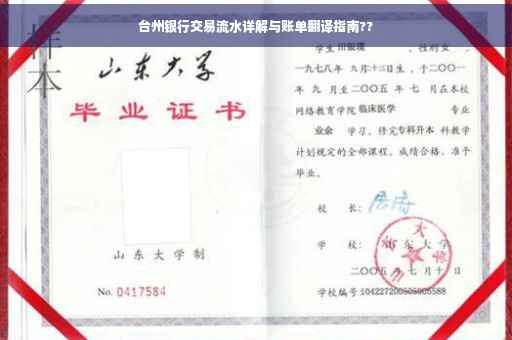 台州银行交易流水详解与账单翻译指南??
样本
山东大学
毕业证书
山东大学制
No. 0417584
学生 田银环 ，性别女，
一九七八年 九月十三日生，于二〇〇一
年 九 月至二〇〇五 年 七 月在本校
网络教育学院临床医学 专业
业余 学习，修完专科升本 科教学
计划规定的全部课程，成绩合格，准予
毕业。
校 长：
学 校：山东大学
二〇〇五 年 七 月 十 日
学校编号:104227200505005588